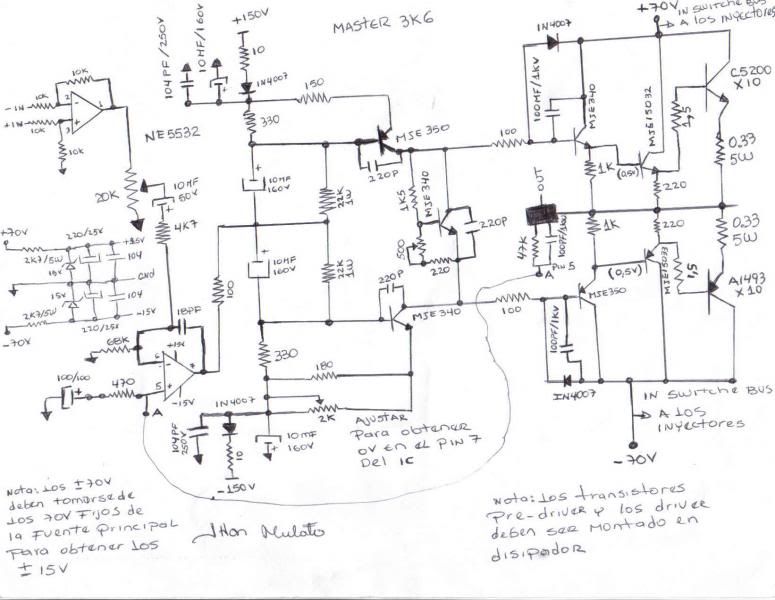 MASTER 3K6
+150V
10
IN4007
104PF/250V
10MF/160V
330
150
MJE 350
220P
10K
-IN
10K
2
1
+IN
10K
3
10K
NE5532
20K
10MF
50V
4K7
10MF
160V
22K
1W
1K5
MJE 340
220P
500
220
100
10MF
160V
22K
1W
220P
MJE 340
+70V
2K7/5W
220/25V
15V
+15V
104
GND
15V
104
-15V
2K7/5W
220/25V
-70V
68K
18PF
+15V
6
7
5
-15V
100/100
470
A
330
180
2K
IN4007
104PF
250V
10
-150V
10MF
160V
AJUSTAR
Para obtener
0V EN EL PIN 7
Del IC
+70V
IN SWITCHE BUS
A LOS INYECTORES
IN4007
100MF/1KV
100
MJE340
MJE15032
C5200
X10
0.33
5W
1K
(0,5V)
220
OUT
47K
100PF/1KV
A
Pin 5
1K
220
0.33
5W
(0,5V)
MJE15033
1,5
A1493
X10
100
MJE350
100PF/1KV
IN4007
IN SWITCHE BUS
A LOS
INYECTORES
-70V
Nota: Los ±70V
deben tomarse de
Los 70V Fijos de
la Fuente Principal
Para obtener Los
± 15V
Jhon Mulato
Nota: Los transistores
Pre-driver y los driver
deben ser Montado en
disipador